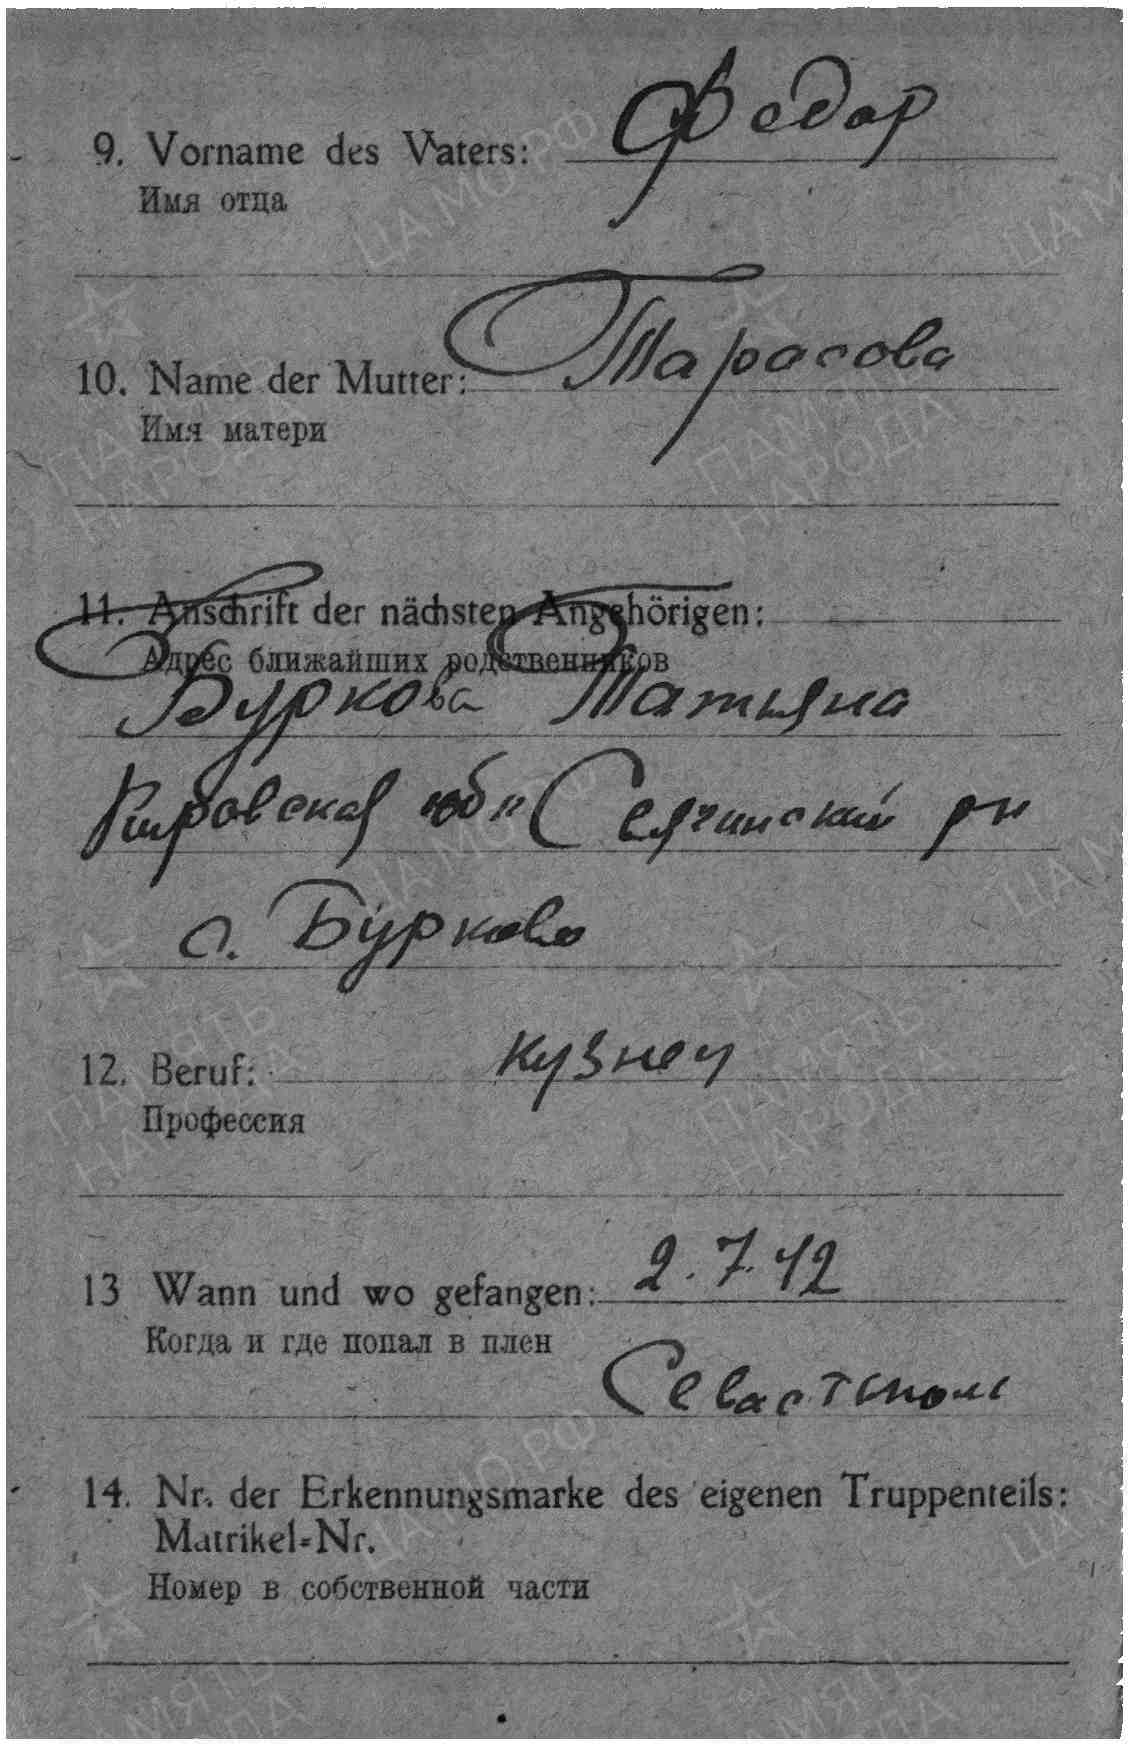 Федор
9. Vorname des Vaters:
Имя отца
Тарасова
10. Name der Mutter:
Имя матери
11. Anschrift der nächsten Angehörigen:
Адрес ближайших родственников
Буркова Татьяна
Кировская обл рн
с. Бурково
12. Beruf: кузнец
Профессия
13 Wann und wo gefangen: 2.7.42
Когда и где попал в плен
14. Nr. der Erkennungsmarke des eigenen Truppenteils:
Matrikel-Nr.
Номер в собственной части
ЦА МО РФ
ПАМЯТЬ
НАРОДА